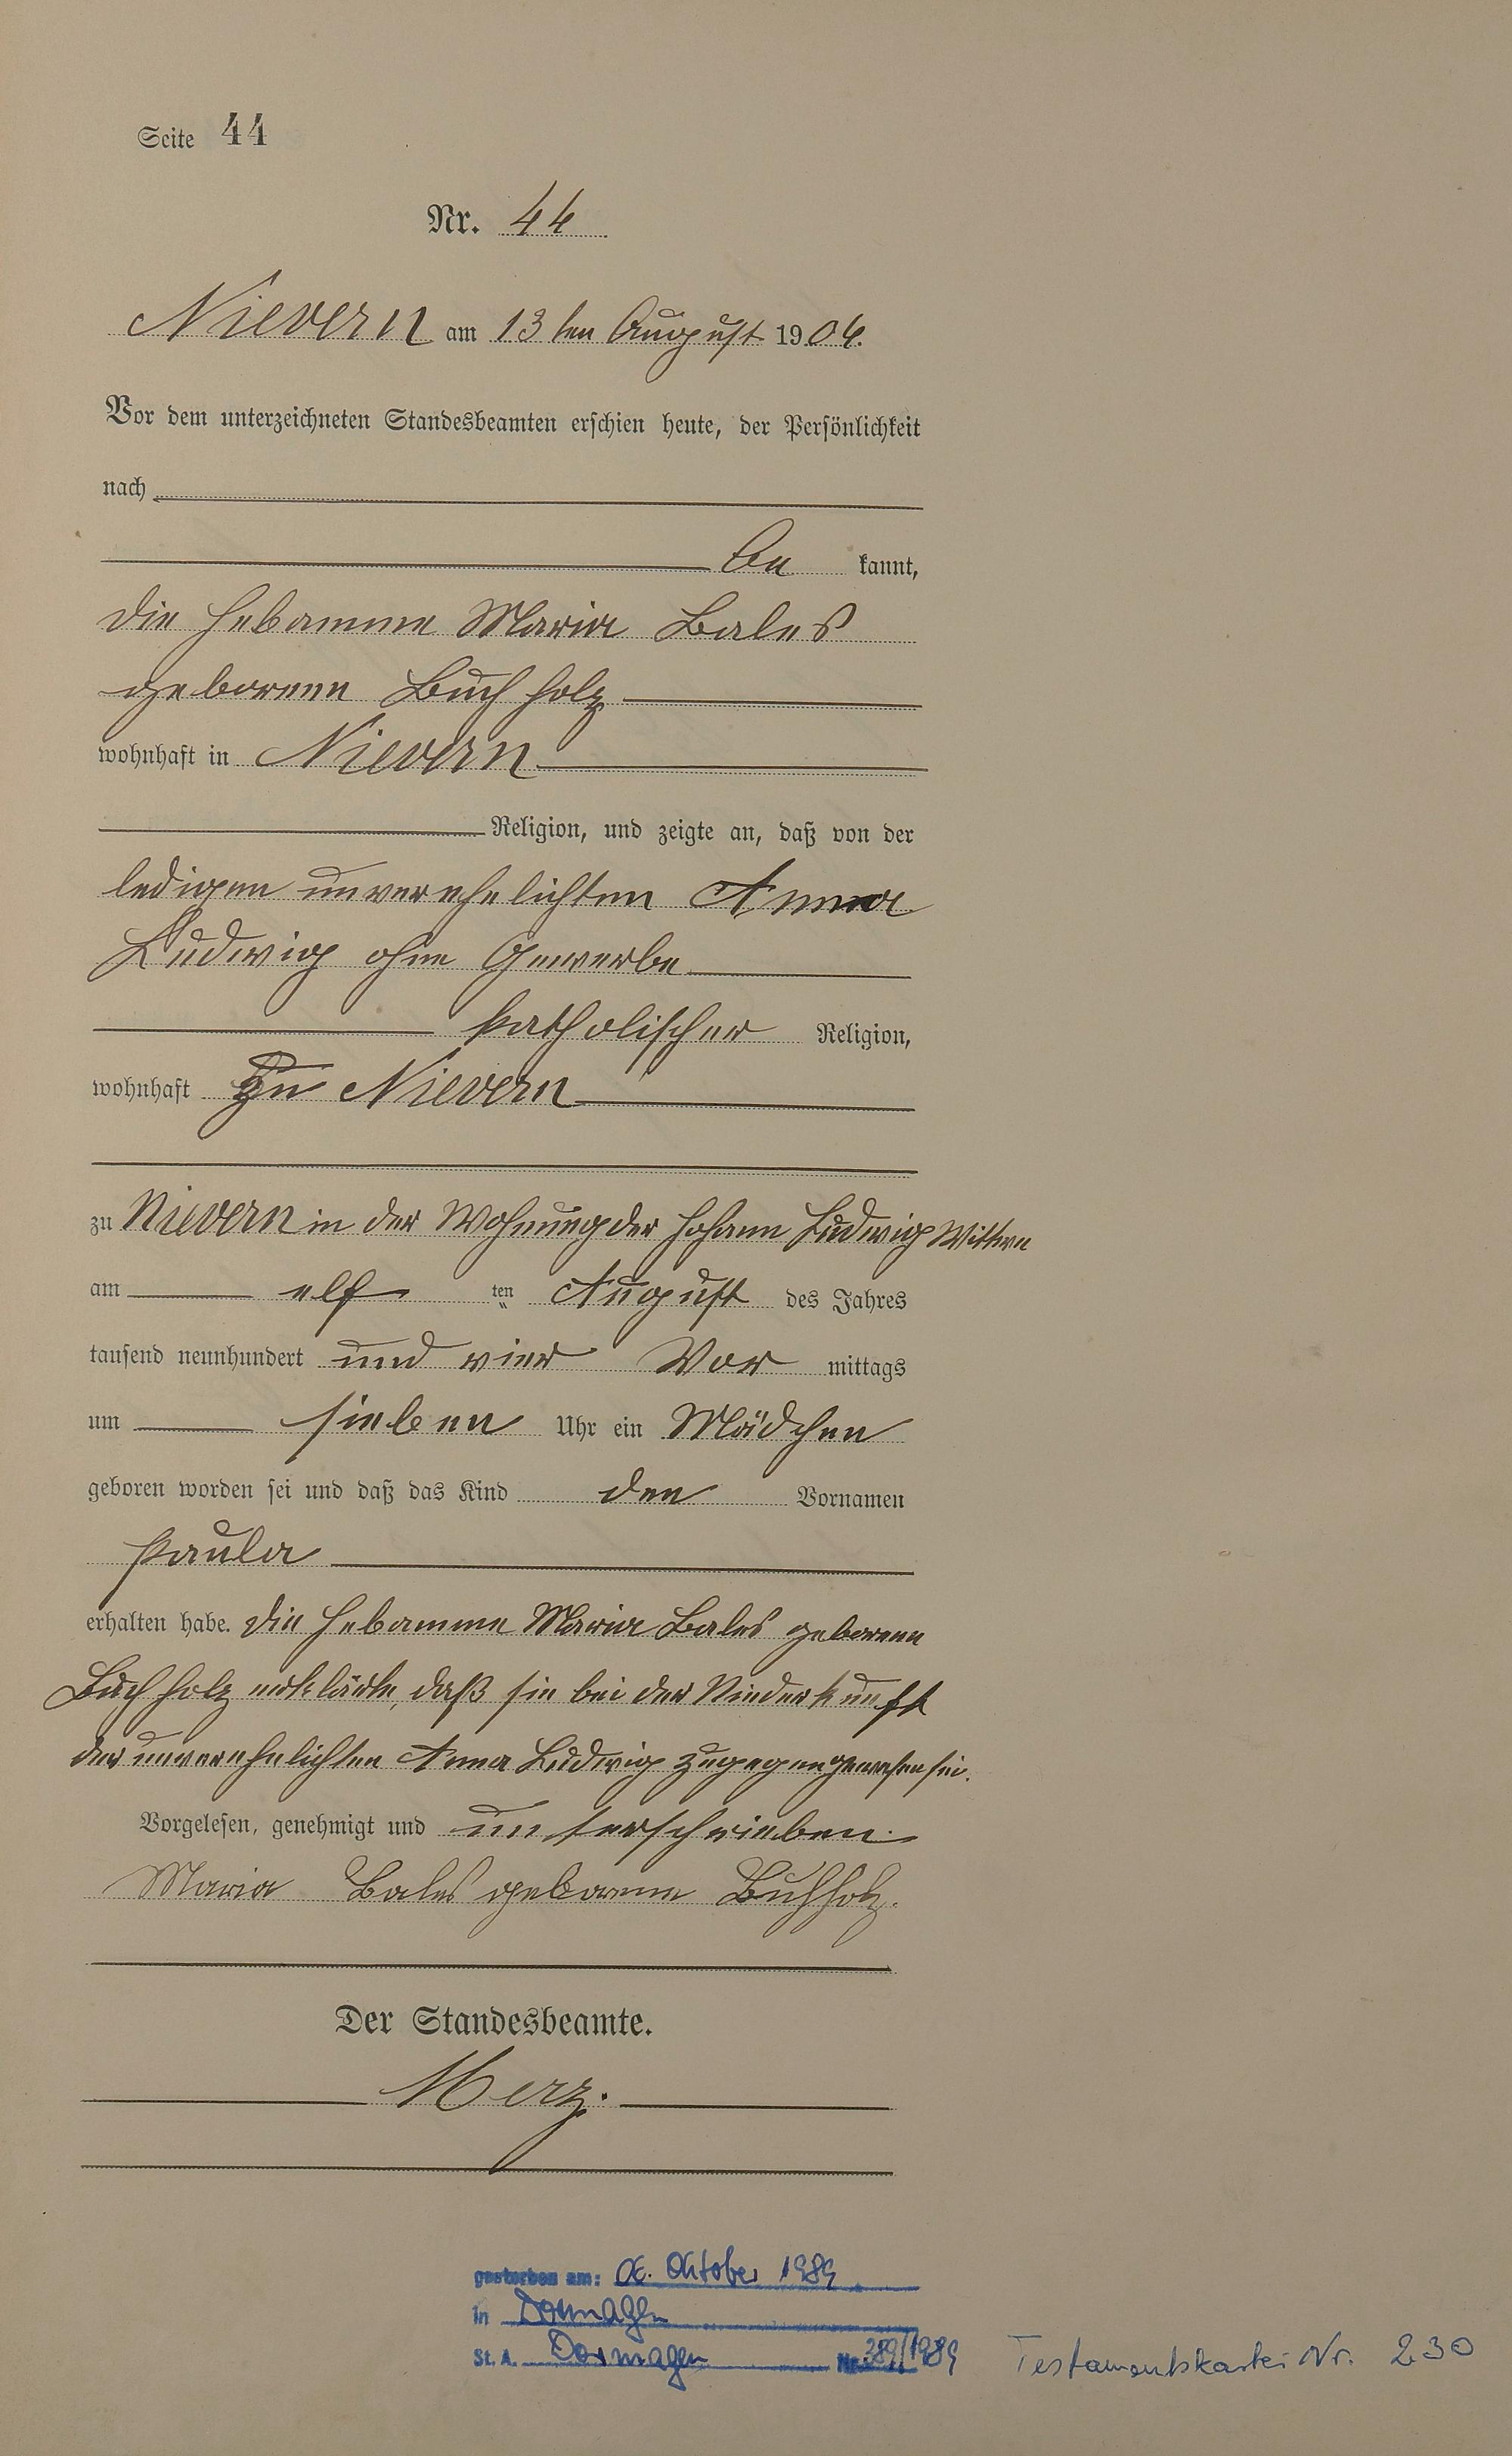 Seite 44
Nr. 44
Nievern am 13ten August 1904.
Vor dem unterzeichneten Standesbeamten erschien heute, der Persönlichkeit
nach
be kannt,
die Hebamme Maria Bales
geborene Buchholz
wohnhaft in Nievern
Religion, und zeigte an, daß von der
ledigen unverehelichten Anna
Ludwig ohne Gewerbe
katholischer Religion,
wohnhaft zu Nievern
zu Nievern in der Wohnung der Johann Ludwig Wittwe
am elf ten August des Jahres
tausend neunhundert und vier Vor mittags
um sieben Uhr ein Mädchen
geboren worden sei und daß das Kind den Vornamen
Paula
erhalten habe. Die Hebamme Maria Bales geborene
Buchholz erklärte, daß sie bei der Niederkunft
der unverehelichten Anna Ludwig zugegen gewesen sei.
Vorgelesen, genehmigt und unterschrieben.
Maria Bales geborene Buchholz.
Der Standesbeamte.
Merz.
gestorben am: 06. Oktober 1989
in Dormagen
St. A. Dormagen Nr. 389/1989 Testamentskartei Nr. 230